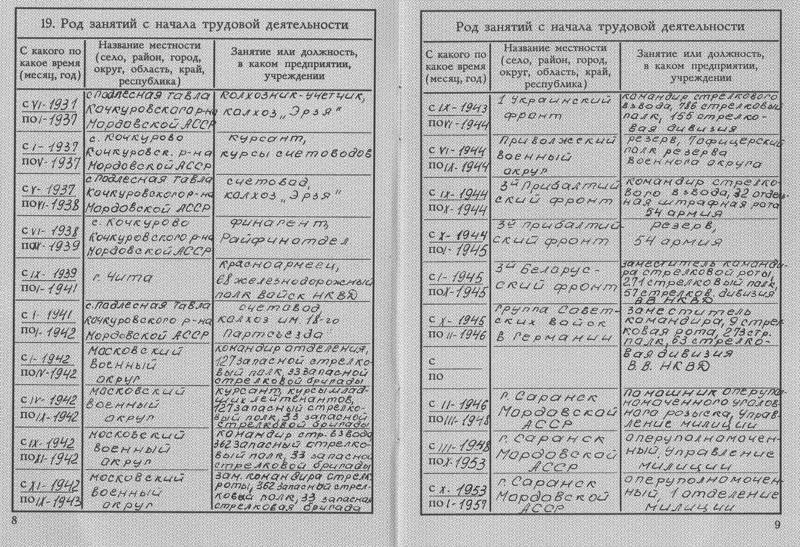 19. Род занятий с начала трудовой деятельности
С какого по какое время (месяц, год)
Название местности (село, район, город, округ, область, край, республика)
Занятие или должность, в каком предприятии, учреждении
с VI-1931
по I-1937
с. Подлесная Тавла
Кочкуровского р-на
Мордовской АССР
колхозник-учетчик,
колхоз „Эрзя"
с I-1937
по V-1937
с. Кочкурово
Кочкуровск. р-на
Мордовской АССР
курсант,
курсы счетоводов
с V-1937
по VI-1938
с. Подлесная Тавла
Кочкуровского р-на
Мордовской АССР
счетовод,
колхоз „Эрзя"
с VI-1938
по IX-1939
с. Кочкурово
Кочкуровского р-на
Мордовской АССР
финагент,
Райфинотдел
с IX-1939
по I-1941
г. Чита
красноармеец,
68 железнодорожный
полк Войск НКВД
с I-1941
по I-1942
с. Подлесная Тавла
Кочкуровского р-на
Мордовской АССР
счетовод,
колхоз им. 18-го
Партсъезда
с I-1942
по IV-1942
Московский
военный
округ
командир отделения,
127 запасной стрелко-
вый полк, 33 запасной
стрелковой бригады
с IV-1942
по IX-1942
Московский
военный
округ
курсант, курсы млад-
ших лейтенантов,
127 запасный стрелко-
вый полк, 33 запасной
стрелковой бригады
с IX-1942
по XI-1942
Московский
военный
округ
командир стр. взвода
362 запасный стрелко-
вый полк, 33 запасной
стрелковой бригады
с XI-1942
по IX-1943
Московский
военный
округ
зам. командира стрелк.
роты, 362 запасный стрел-
ковый полк, 33 запасная
стрелковая бригада
8
Род занятий с начала трудовой деятельности
С какого по какое время (месяц, год)
Название местности (село, район, город, округ, область, край, республика)
Занятие или должность, в каком предприятии, учреждении
с IX-1943
по VI-1944
1 Украинский
фронт
командир стрелкового
взвода, 786 стрелковый
полк, 155 стрелко-
вая дивизия
с VI-1944
по IX-1944
Приволжский
военный
округ
резерв,
полк резерва
военного округа
с IX-1944
по X-1944
3й Прибалтий
ский фронт
командир стрелко-
вого взвода, 32 отдель-
ная штрафная рота
54 армия
с X-1944
по I-1945
3й Прибалтий-
ский фронт
резерв,
54 армия
с I-1945
по X-1945
3й Беларус-
ский фронт
заместитель команди-
ра стрелковой роты,
271 стрелковый полк,
57 стрелков. дивизия
ВВ НКВД
с X-1945
по II-1946
группа Совет-
ских войск
в Германии
заместитель
командира, 9 стрел-
ковая рота, 273 стр.
полк, 63 стрелко-
вая дивизия
В.В. НКВД
с
по
с II-1946
по III-1948
г. Саранск
Мордовской
АССР
помошник оперупол-
номоченного уголов-
ного розыска, Управ-
ление милиции
с III-1948
по X-1953
г. Саранск
Мордовской
АССР
оперуполномочен-
ный, Управление
милиции
с X-1953
по I-1957
г. Саранск
Мордовской
АССР
оперуполномочен-
ный, 1 отделение
милиции
9